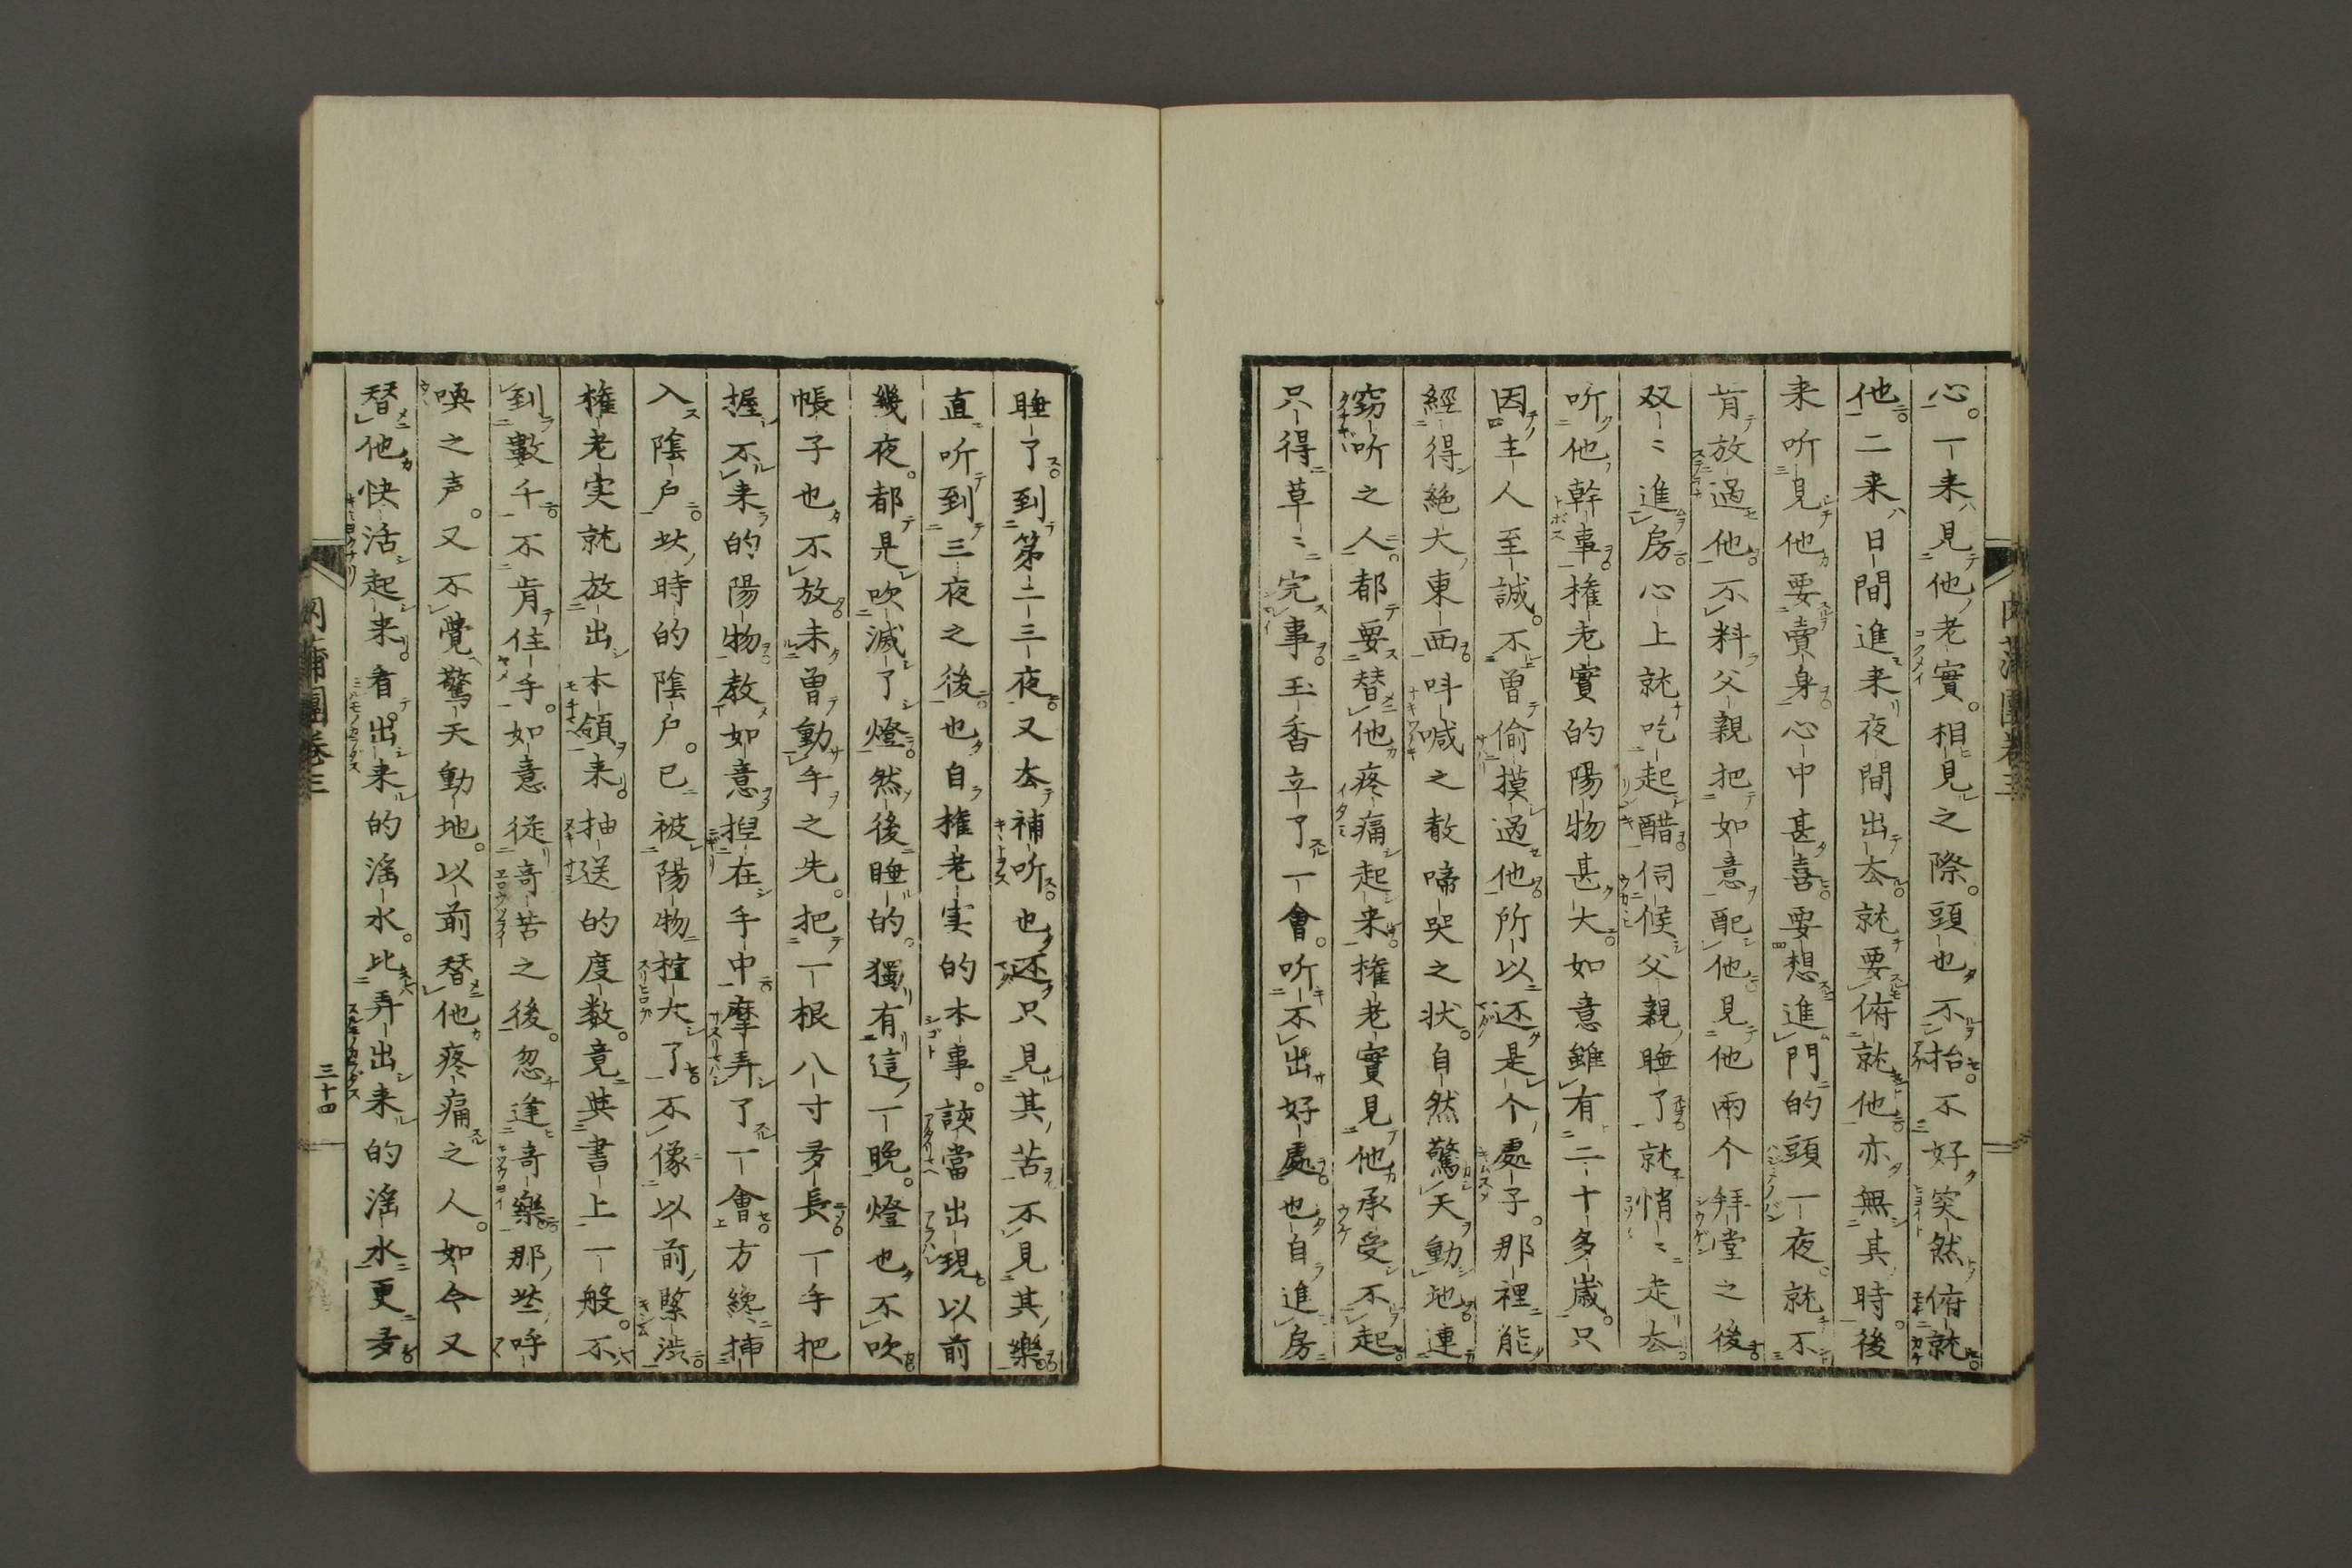 肉蒲團卷三
心。一来見他老實。相見之際。頭也不抬不好突然俯就。
他二来日間進来夜間出去就要俯就他亦無其時。後
来听見他要賣身心中甚喜要想進門的頭一夜。就不
肯放過他不料父親把如意配他見他兩个拜堂之後
双〻進房心上就吃起醋伺候父親睡了就悄〻走去
听他幹事。權老實的陽物甚大。如意雖有二十多歲。只
因主人至誠。不曽偷摸過他所以还是个處子。那裡能
經得絶大東西呌喊之散啼哭之状。自然驚天動地連
窈听之人都要替他疼痛起来。權老實見他承受不起
只得草〻完事。玉香立了一會。听不出好處也自進房
睡了。到第二三夜又去補听。也还只見其苦不見其樂
直听到三夜之後也自權老实的本事。該當出現以前
幾夜。都是吹滅了燈。然後睡的。獨有這一晚。燈也不吹
帳子也不放。未曽動手之先。把一根八寸多長一手把
握不来的陽物教如意揑在手中摩弄了一會方纔挿
入陰户。此時的陰户。已被陽物楦大了不像以前緊澁
權老実就放出本領来。抽送的度数。竟與書上一般。不
到數千不肯住手。如意從奇苦之後。忽逢奇樂那些呼
喚之声。又不覺驚天動地。以前替他疼痛之人。如今又
替他快活起来。看出来的滛水。比弄出来的滛水更多
肉蒲團卷三
三十四